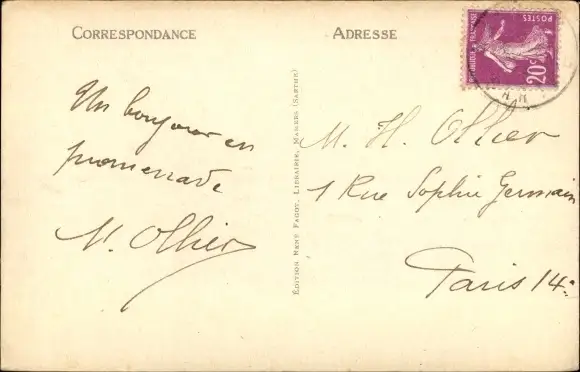 CORRESPONDANCE
Un bonjour en
promenade
M. Ollier
ÉDITION RENÉ FAGOT, LIBRAIRIE, MAMERS (SARTHE)
ADRESSE
M. H. Ollier
1 Rue Sophie Germain
Paris 14e
POSTES
20c